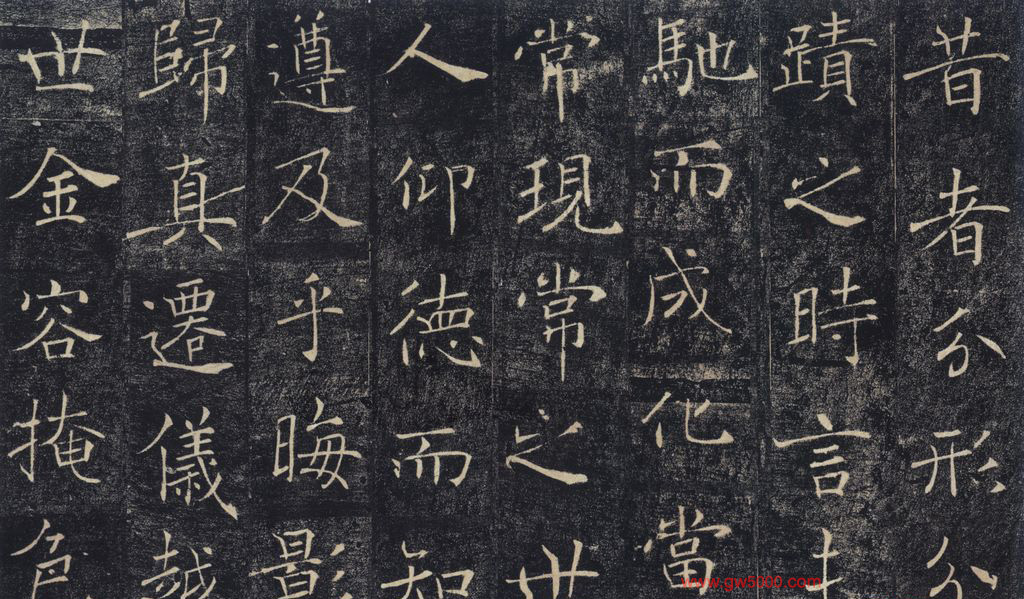 昔者分形分
蹟之時言
馳而成化當
常現常之世
人仰德而知
遵及乎晦影
歸真遷儀越
世金容掩色
www.gw5000.com